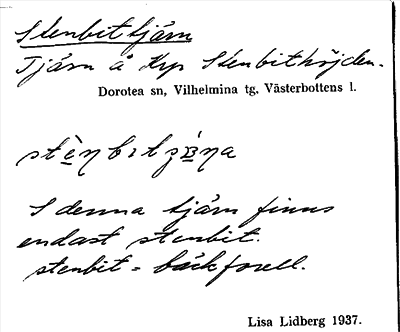 Stenbittjärn
Tjärn å Krp Stenbithöjden.
Dorotea sn, Vilhelmina tg, Västerbottens l.
I denna tjärn finns
endast stenbit.
stenbit = bäckforell.
Lisa Lidberg 1937.